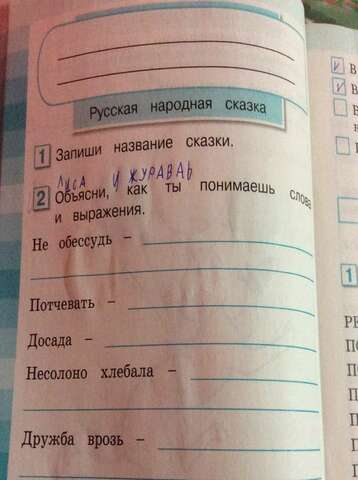 Русская народная сказка
1 Запиши название сказки.
Лиса и журавль
2 Объясни, как ты понимаешь слова
и выражения.
Не обессудь –
Потчевать –
Досада –
Несолоно хлебала –
Дружба врозь –
В
В
1